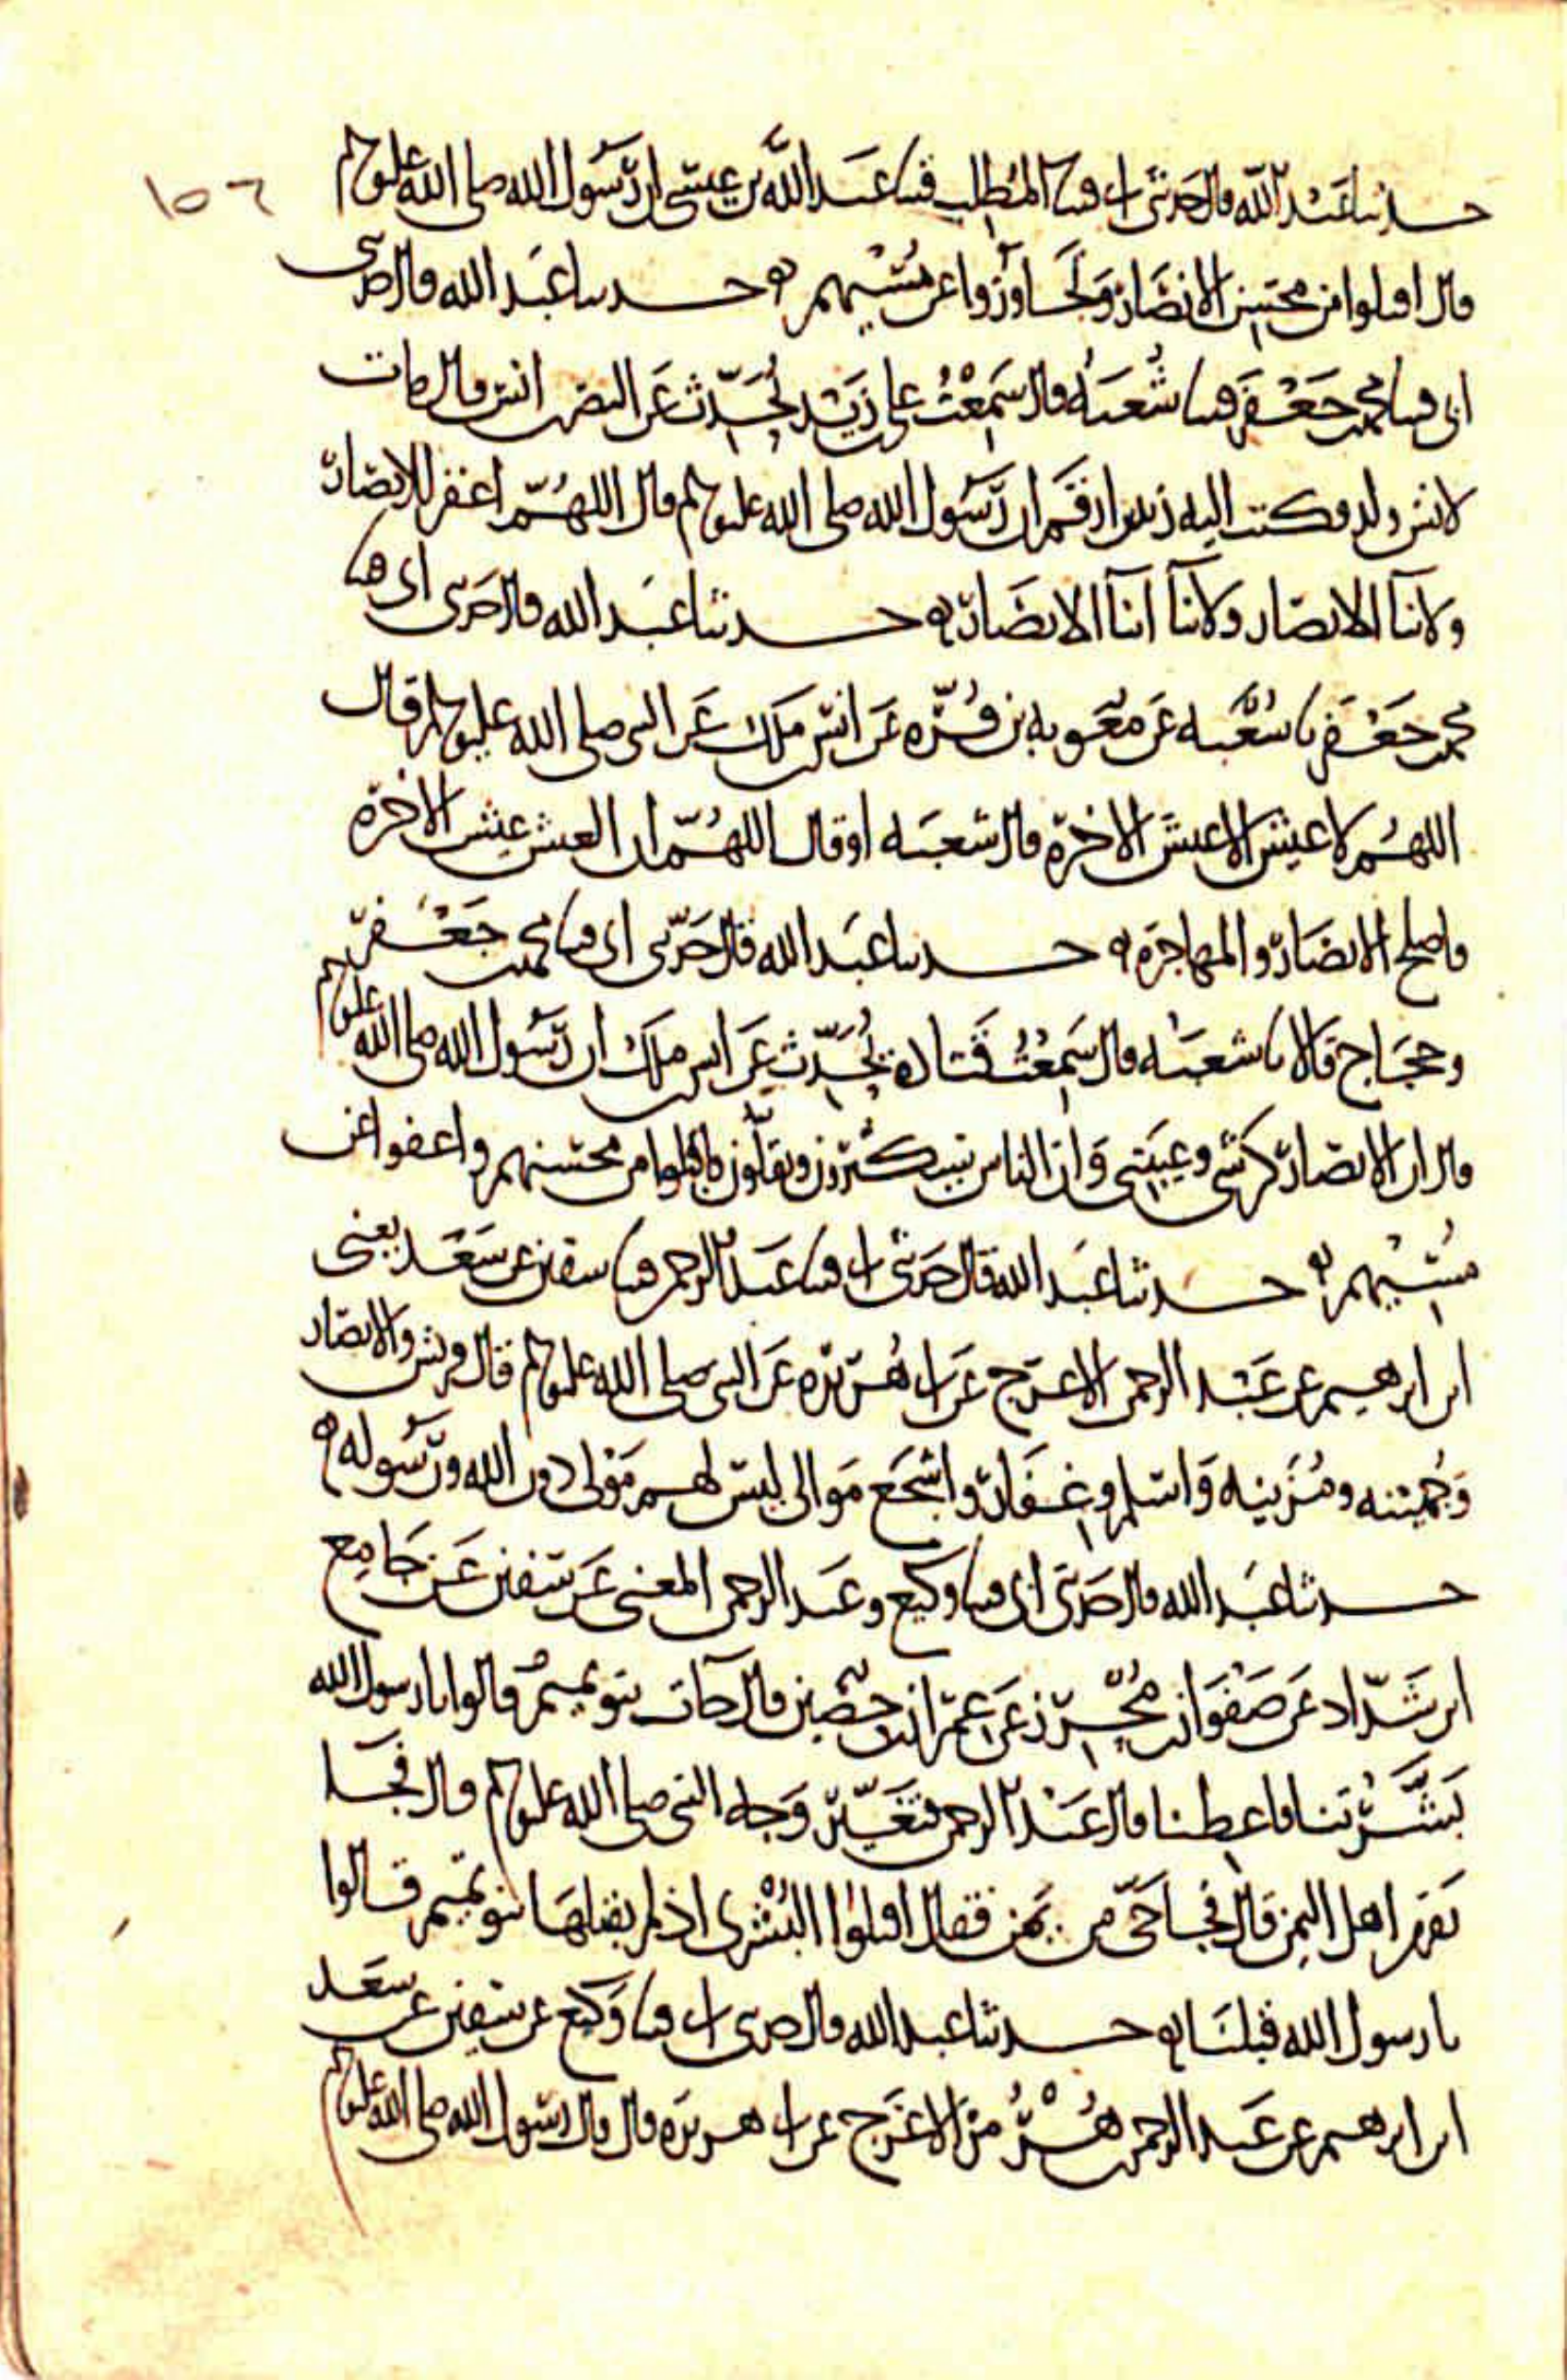 ١٥٦
حدثنا عبد الله قال حدثني ابي قثنا المطلب قثنا عبد الله بن عيسى ان رسول الله صلى الله عليه وسلم
قال اقبلوا من محسن الانصار وتجاوزوا عن مسيهم ه حدثنا عبد الله قال حدثني
ابي قثنا محمد بن جعفر قثنا شعبة قال سمعت علي بن زيد يحدث عن النضر بن انس قال مات
لانس ولد فكتب اليه زيد بن ارقم ان رسول الله صلى الله عليه وسلم قال اللهم اغفر للانصار
ولابنا الانصار ولابنا ابنا الانصار ه حدثنا عبد الله قال حدثني ابي قثنا
محمد بن جعفر نا شعبة عن معوية بن قرة عن انس بن ملك عن النبي صلى الله عليه وسلم قال
اللهم لا عيش الا عيش الاخرة قال شعبة او قال اللهم ان العيش عيش الاخرة
فاصلح الانصار والمهاجرة ه حدثنا عبد الله قال حدثني ابي قثنا محمد بن جعفر
وحجاج قالا نا شعبة قال سمعت قتادة يحدث عن انس بن ملك ان رسول الله صلى الله عليه وسلم
قال ان الانصار كرشي وعيبتي وان الناس سيكثرون ويقلون فاقبلوا من محسنهم واعفوا عن
مسيهم ه حدثنا عبد الله قال حدثني ابي قثنا عبد الرحمن قثنا سفين عن سعد يعني
ابن ابرهيم عن عبد الرحمن الاعرج عن ابي هريرة عن النبي صلى الله عليه وسلم قال قريش والانصار
وجهينة ومزينة واسلم وغفار واشجع موالي ليس لهم مولى دون الله ورسوله ه
حدثنا عبد الله قال حدثني ابي قثنا وكيع وعبد الرحمن المعنى عن سفين عن جامع
ابن شداد عن صفوان بن محرز عن عمران بن حصين قال جات بنو تميم قالوا يا رسول الله
بشرتنا فاعطنا قال عبد الرحمن فتغير وجه النبي صلى الله عليه وسلم قال فجا
نفر من اهل اليمن قال فجا حي من يمن فقال اقبلوا البشرى اذ لم يقبلها بنو تميم قالوا
يا رسول الله قبلنا ه حدثنا عبد الله قال حدثني ابي قثنا وكيع عن سفين عن سعد
ابن ابرهيم عن عبد الرحمن بن هرمز الاعرج عن ابي هريرة قال قال رسول الله صلى الله عليه وسلم